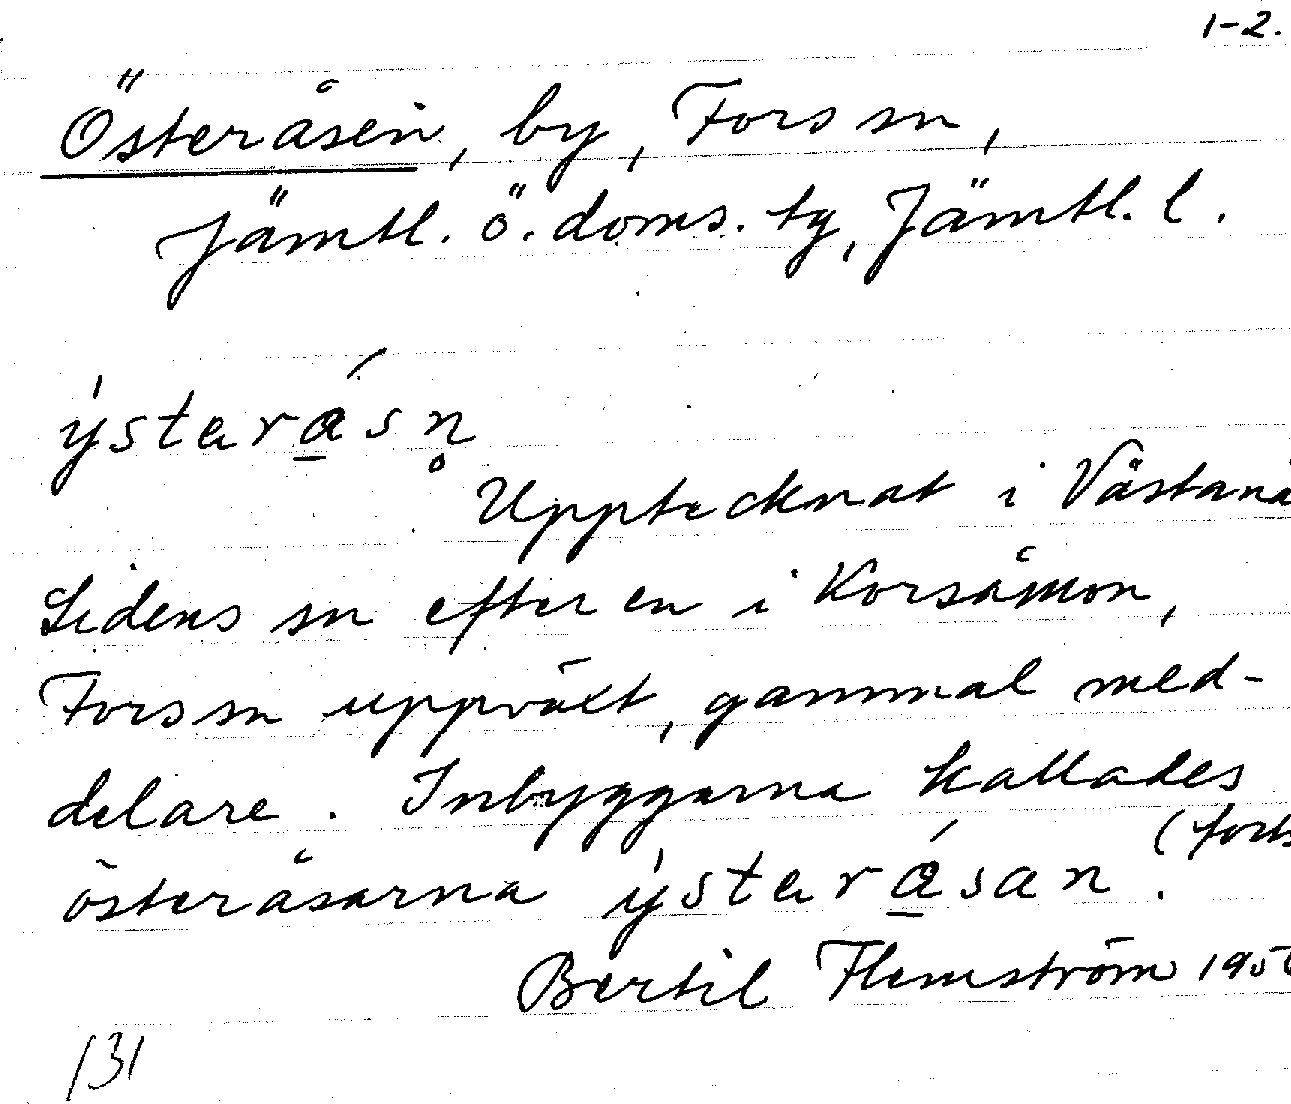 1-2.
Österåsen, by, Fors sn,
Jämtl. ö. doms. tg, Jämtl. l.
ẏstarásn̥
Upptecknat i Västanå
Lidens sn efter en i Korsåmon,
Fors sn uppväxt, gammal med-
delare. Inbyggarna kallades
österåsarna ẏstarásan. (forts
Bertil Flemström 195
131